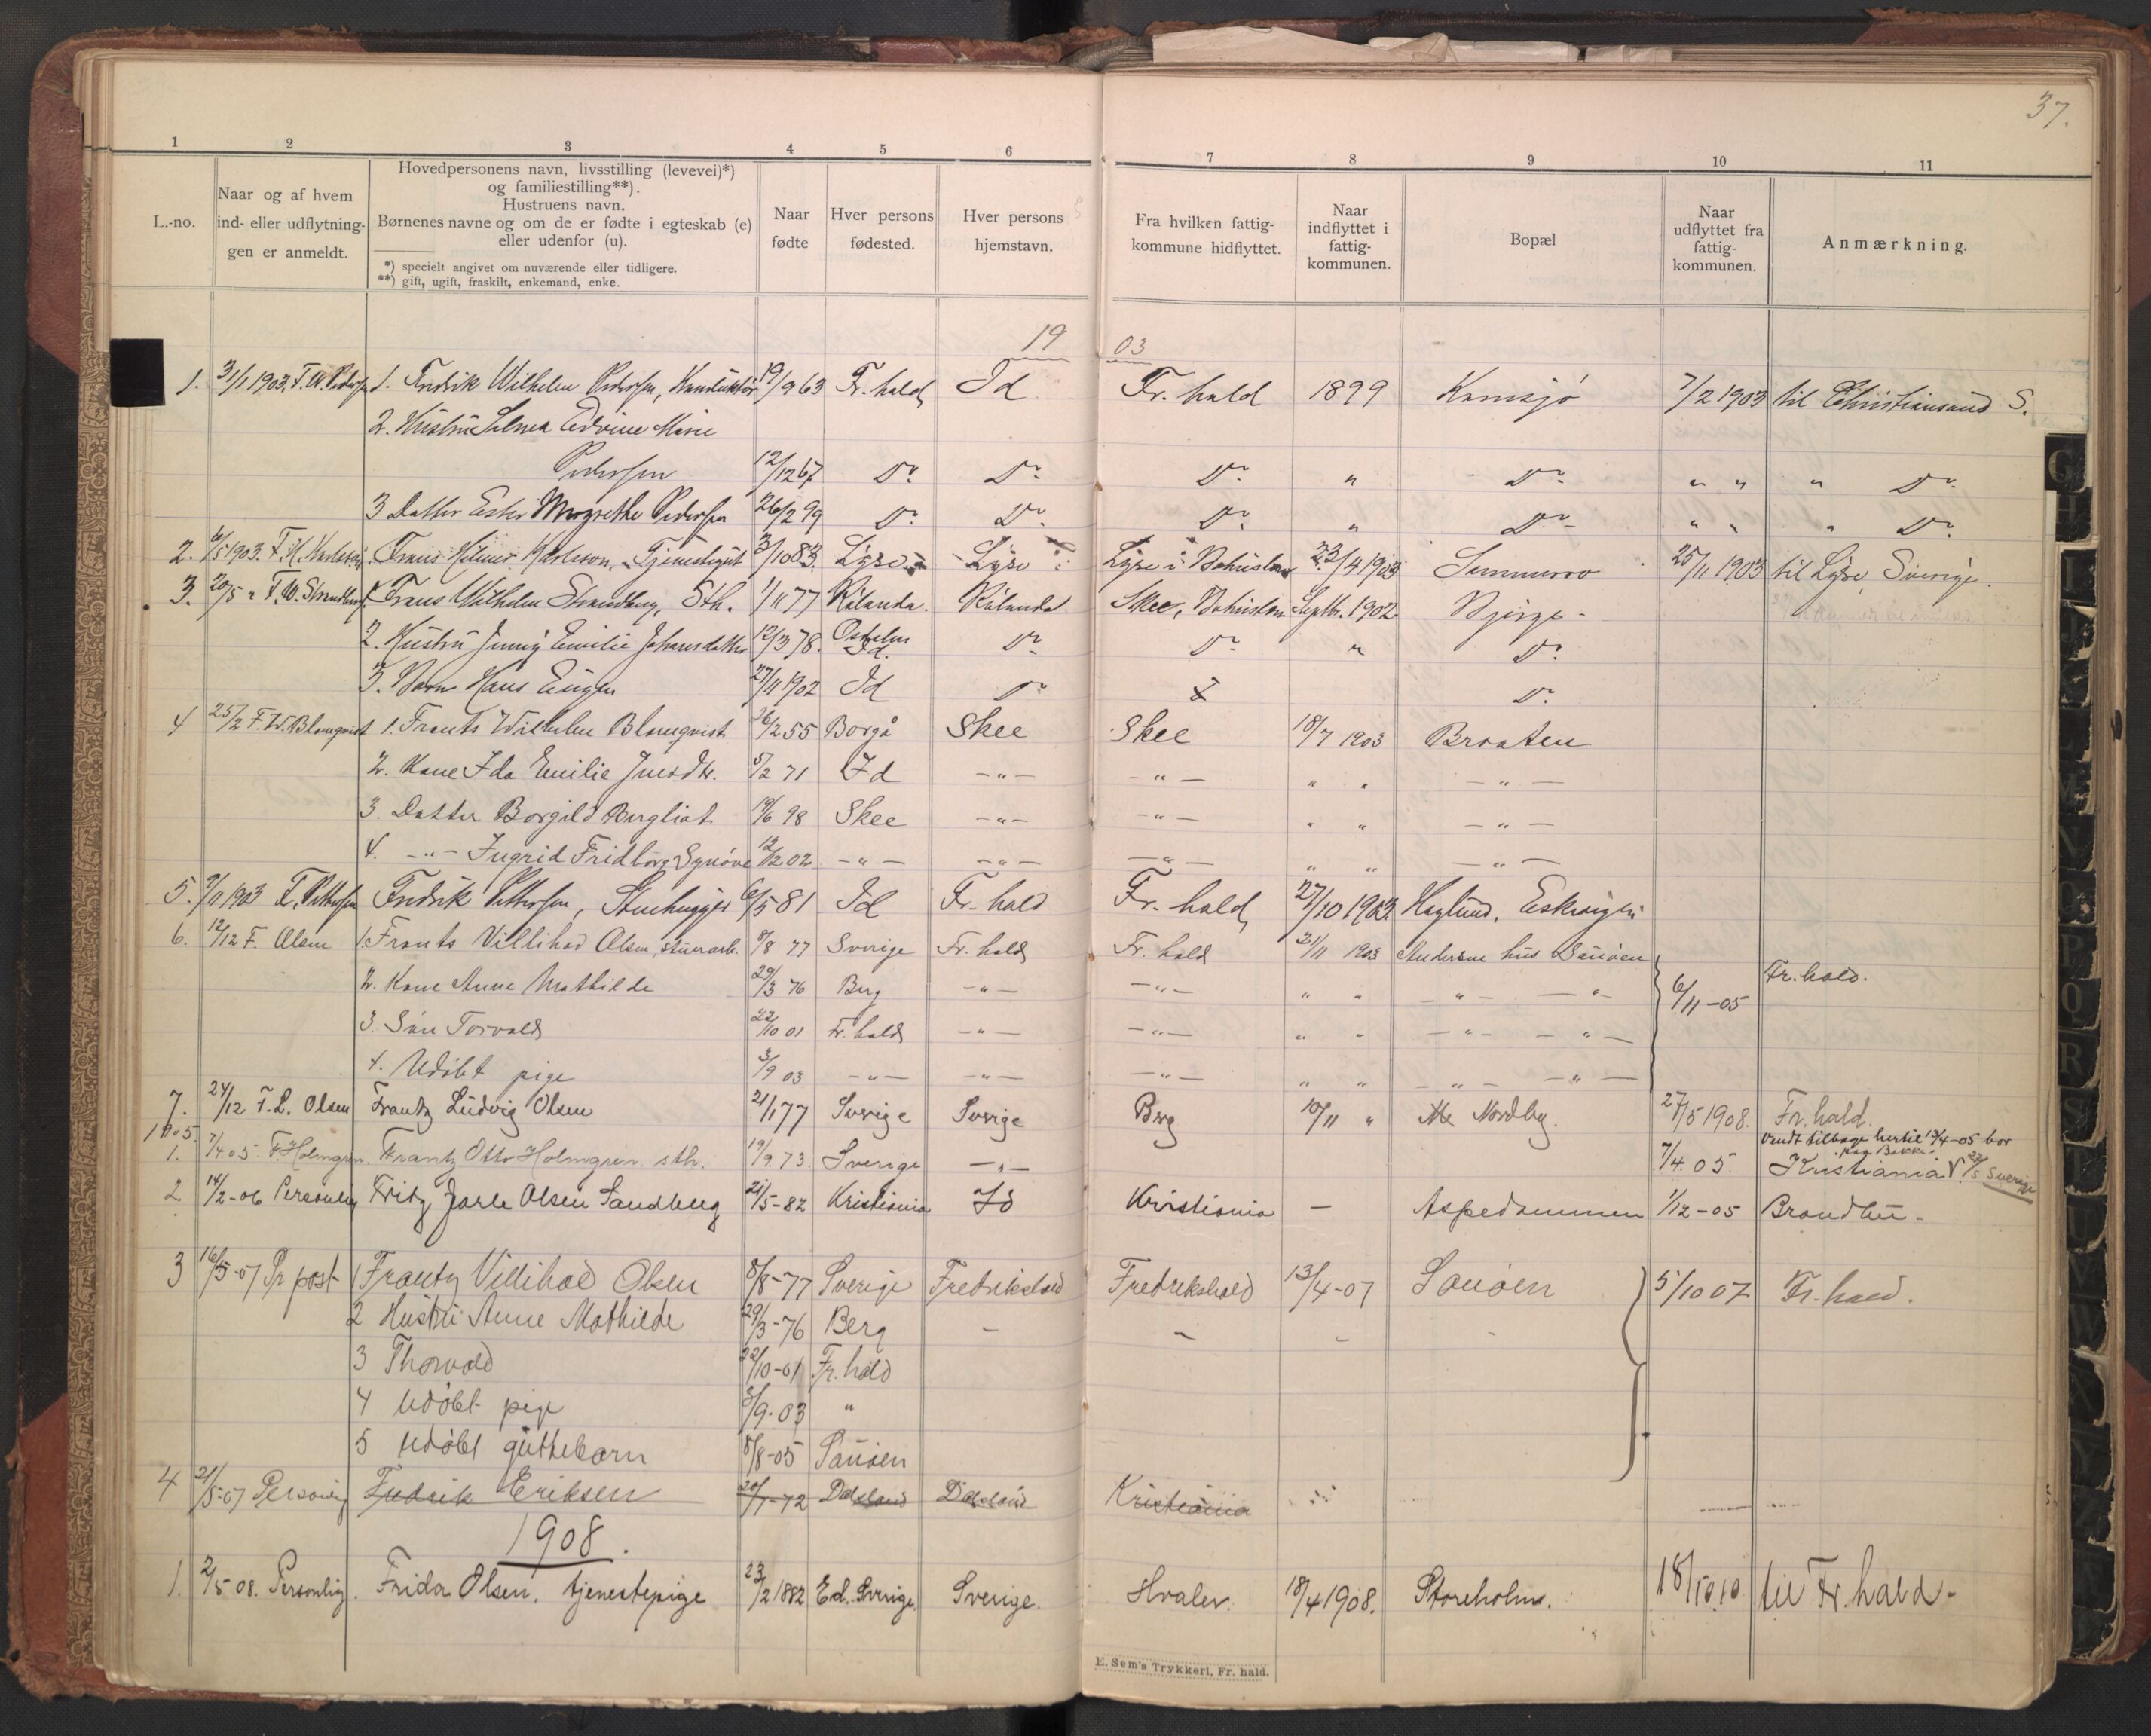 37.
1 2 3 4 5 6 7 8 9 10 11
L.-no.
Naar og af hvem
ind- eller udflytnin-
gen er anmeldt.
Hovedpersonens navn, livsstilling (levevei)*)
og familiestilling**).
Hustruens navn.
Børnenes navne og om de er fødte i egteskab (e)
eller udenfor (u).
*) specielt angivet om nuværende eller tidligere.
**) gift, ugift, fraskilt, enkemand, enke.
Naar
fødte
Hver persons
fødested.
Hver persons
hjemstavn.
Fra hvilken fattig-
kommune hidflyttet.
Naar
indflyttet i
fattig-
kommunen.
Bopæl
Naar
udflyttet fra
fattig-
kommunen.
Anmærkning.
19 03
1. 31/1 1903. F. W. Pedersen 1. Fredrik Wilhelm Pedersen, Konduktør 19/9 63 Fr. hald Id Fr. hald 1899 Kornsjø 7/2 1903 til Christiansand S.
2. Hustru Selma Edvine Marie
Pedersen 12/12 67 Do Do Do " Do " " " Do
3 Datter Ester Margrethe Pedersen 26/2 99 Do Do Do " Do " " " Do
2. 6/5 1903. F. H. Karlsson Frans Hilmer Karlsson, Tjenestegut 3/10 83. Lyse Lyse Lyse i Bohuslen 23/4 1903 25/11 1903 til Lyse, Sverige.
3. 20/5 " F. W. Strandberg 1. Frans Wilhelm Strandberg, Sth. 1/11 77 Rålanda. Rålanda Skee, Bohuslen Septb. 1902 Bjørge
2. Hustru Jenny Emilie Johansdatter 12/3 78. Id. Do Do " Do
3. Barn Hans Eugen 27/11 1902 Id Do Do
4 25/2 F. W. Blomqvist 1. Frants Wilhelm Blomqvist 26/2 55 Borgå Skee Skee 18/7 1903 Braaten
2. Kone Ida Emilie Jnsdtr. 5/2 71 Id — " — — " — " " — " —
3. Datter Borgild Bergliot 19/6 98 Skee — " — — " — " " — " —
4. — " — Ingrid Fridborg Synøve 12/12 02 — " — — " — — " — " " — " —
5. 9/11 1903 F. Pettersen Fredrik Pettersen, Stenhugger 6/5 81 Id Fr. hald Fr. hald 27/10 1903 Haglund, Eskevigen
6. 12/12 F. Olsen 1. Frants Villihad Olsen, stenarb. 8/8 77 Sverige Fr. hald Fr. hald 21/11 1903 Andersens hus Sauøen
2. Kone Anne Mathilde 29/3 76 Berg — " — — " — " " — " — — " — 6/11 -05 Fr. hald.
3. Søn Torvald 22/10 01 Fr. hald — " — — " — " " — " — — " —
4. Udøbt pige 3/9 03 — " — — " — — " — " " — " — — " —
7. 24/12 F. L. Olsen Frantz Ludvig Olsen 21/1 77 Sverige Sverige Berg 10/11 " Nordby. 27/5 1908. Fr. hald.
1905.
1. 7/4 05 F. Holmgren. Frantz Otto Holmgren sth. 19/9. 73. Sverige — " — 7/4. 05. Kristiania
vendt tilbage hertil 13/4-05 bor
paa Bakke. 23/5 Sverige
2 14/2-06 Personlig Fritz Jarle Olsen Sandberg 21/5-82 Kristiania Id Kristiania — Aspedammen 1/12-05 Brandbu.
3 16/5-07 Pr post 1 Frantz Villihad Olsen 8/8-77 Sverige Fredrikshald Fredrikshald 13/4-07 Sauøen 5/10 07 Fr. hald.
2 Hustru Anne Mathilde 29/3-76 Berg — — — —
3 Thorvald 22/10-01 Fr. hald
4 Udøbt pige 3/9-03 "
5 Udøbt guttebarn 8/8-05 Sauøen
4 21/5-07 Personlig Fredrik Eriksen 20/1-72 Dalsland Dalsland Kristiania
1908.
1. 2/5-08. Personlig. Frida Olsen, tjenestepige 23/2 1882 Ed. Sverige. Sverige. Hvaler. 18/4 1908. Storeholm. 18/10.10 til Fr. hald.
E. Sem's Trykkeri, Fr. hald.
G
H
O
P
Q
R
S
T
U
V
W